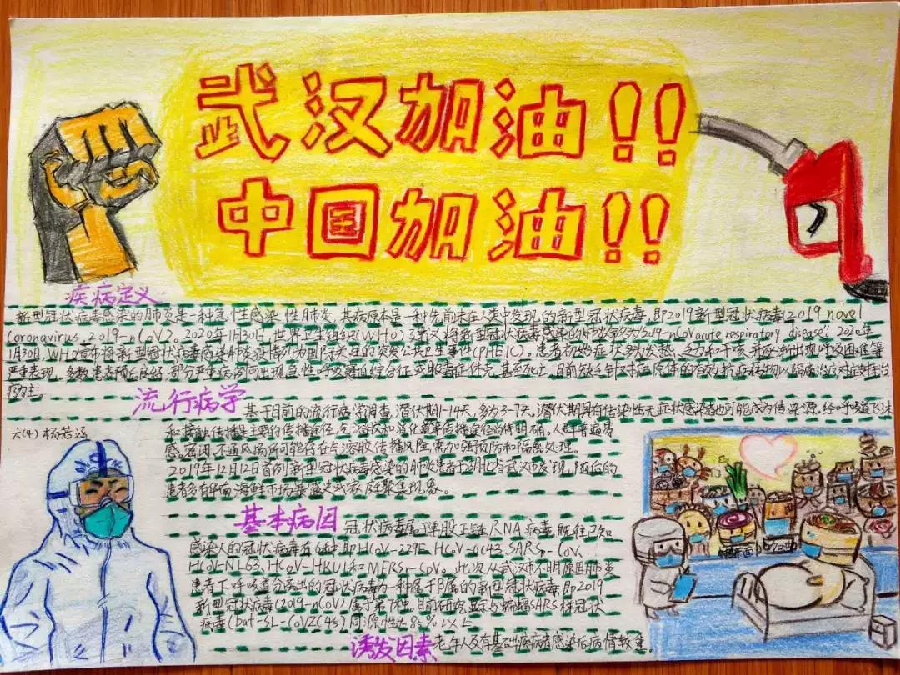 武汉加油!!
中国加油!!
疾病定义
新型冠状病毒感染的肺炎是一种急性感染性肺炎,其病原体是一种先前未在人类中发现的新型冠状病毒,即2019新型冠状病毒(2019 novel
coronavirus, 2019-nCoV)。2020年1月30日,世界卫生组织(WHO)将新型冠状病毒感染的肺炎命名为2019-nCoV acute respiratory disease。2020年
1月30日WHO宣布将新型冠状病毒感染的肺炎疫情列为国际关注的突发公共卫生事件(PHEIC)。患者初始症状多为发热、乏力和干咳,并逐渐出现呼吸困难等
严重表现。多数患者预后良好,部分严重病例可出现急性呼吸窘迫综合征或脓毒症休克,甚至死亡。目前缺乏针对病原体的有效抗病毒药物,以隔离治疗、对症支持治
疗为主。
流行病学
基于目前的流行病学调查,潜伏期1-14天,多为3-7天,潜伏期具有传染性,无症状感染者也可能成为传染源。经呼吸道飞沫
六(4)
和接触传播是主要的传播途径,
2019年12月12日首例新型冠状病毒感染的肺炎患者于湖北省武汉市发现,
患者多有华南海鲜市场暴露史或家庭聚集现象。
基本病因
冠状病毒属于单股正链RNA病毒,既往已知
感染人的冠状病毒有6种,即HCoV-229E、HCoV-OC43、SARSr-CoV、
HCoV-NL63、HCoV-HKU1和MERSr-CoV。此次从武汉市不明原因肺炎
患者下呼吸道分离出的冠状病毒为一种属于β属的新型冠状病毒,即2019
新型冠状病毒(2019-nCoV),属于第7种。目前研究显示与蝙蝠SARS样冠状
病毒(bat-SL-CoVZC45)同源性达85%以上
诱发因素
老年人及有基础疾病者感染后病情较重。
加油